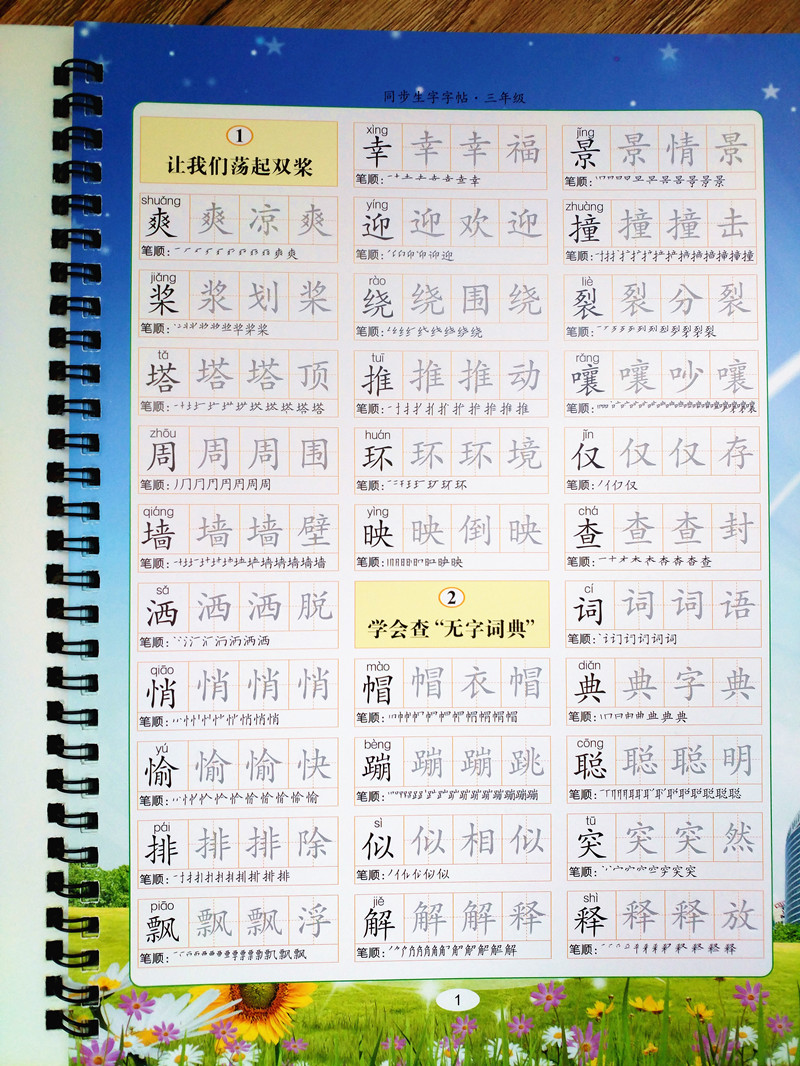 同步生字字帖·三年级
1
让我们荡起双桨
shuǎng
爽 爽 凉 爽
笔顺:
jiǎng
桨 桨 划 桨
笔顺:
tǎ
塔 塔 塔 顶
笔顺:
zhōu
周 周 周 围
笔顺:
qiáng
墙 墙 墙 壁
笔顺:
sǎ
洒 洒 洒 脱
笔顺:
qiāo
悄 悄 悄 悄
笔顺:
yú
愉 愉 愉 快
笔顺:
pái
排 排 排 除
笔顺:
piāo
飘 飘 飘 浮
笔顺:
xìng
幸 幸 幸 福
笔顺:
yíng
迎 迎 欢 迎
笔顺:
rào
绕 绕 围 绕
笔顺:
tuī
推 推 推 动
笔顺:
huán
环 环 环 境
笔顺:
yìng
映 映 倒 映
笔顺:
2
学会查“无字词典”
mào
帽 帽 衣 帽
笔顺:
bèng
蹦 蹦 蹦 跳
笔顺:
sì
似 似 相 似
笔顺:
jiě
解 解 解 释
笔顺:
jǐng
景 景 情 景
笔顺:
zhuàng
撞 撞 撞 击
笔顺:
liè
裂 裂 分 裂
笔顺:
rǎng
嚷 嚷 吵 嚷
笔顺:
jǐn
仅 仅 仅 存
笔顺:
chá
查 查 查 封
笔顺:
cí
词 词 词 语
笔顺:
diǎn
典 典 字 典
笔顺:
cōng
聪 聪 聪 明
笔顺:
tū
突 突 突 然
笔顺:
shì
释 释 释 放
笔顺:
1